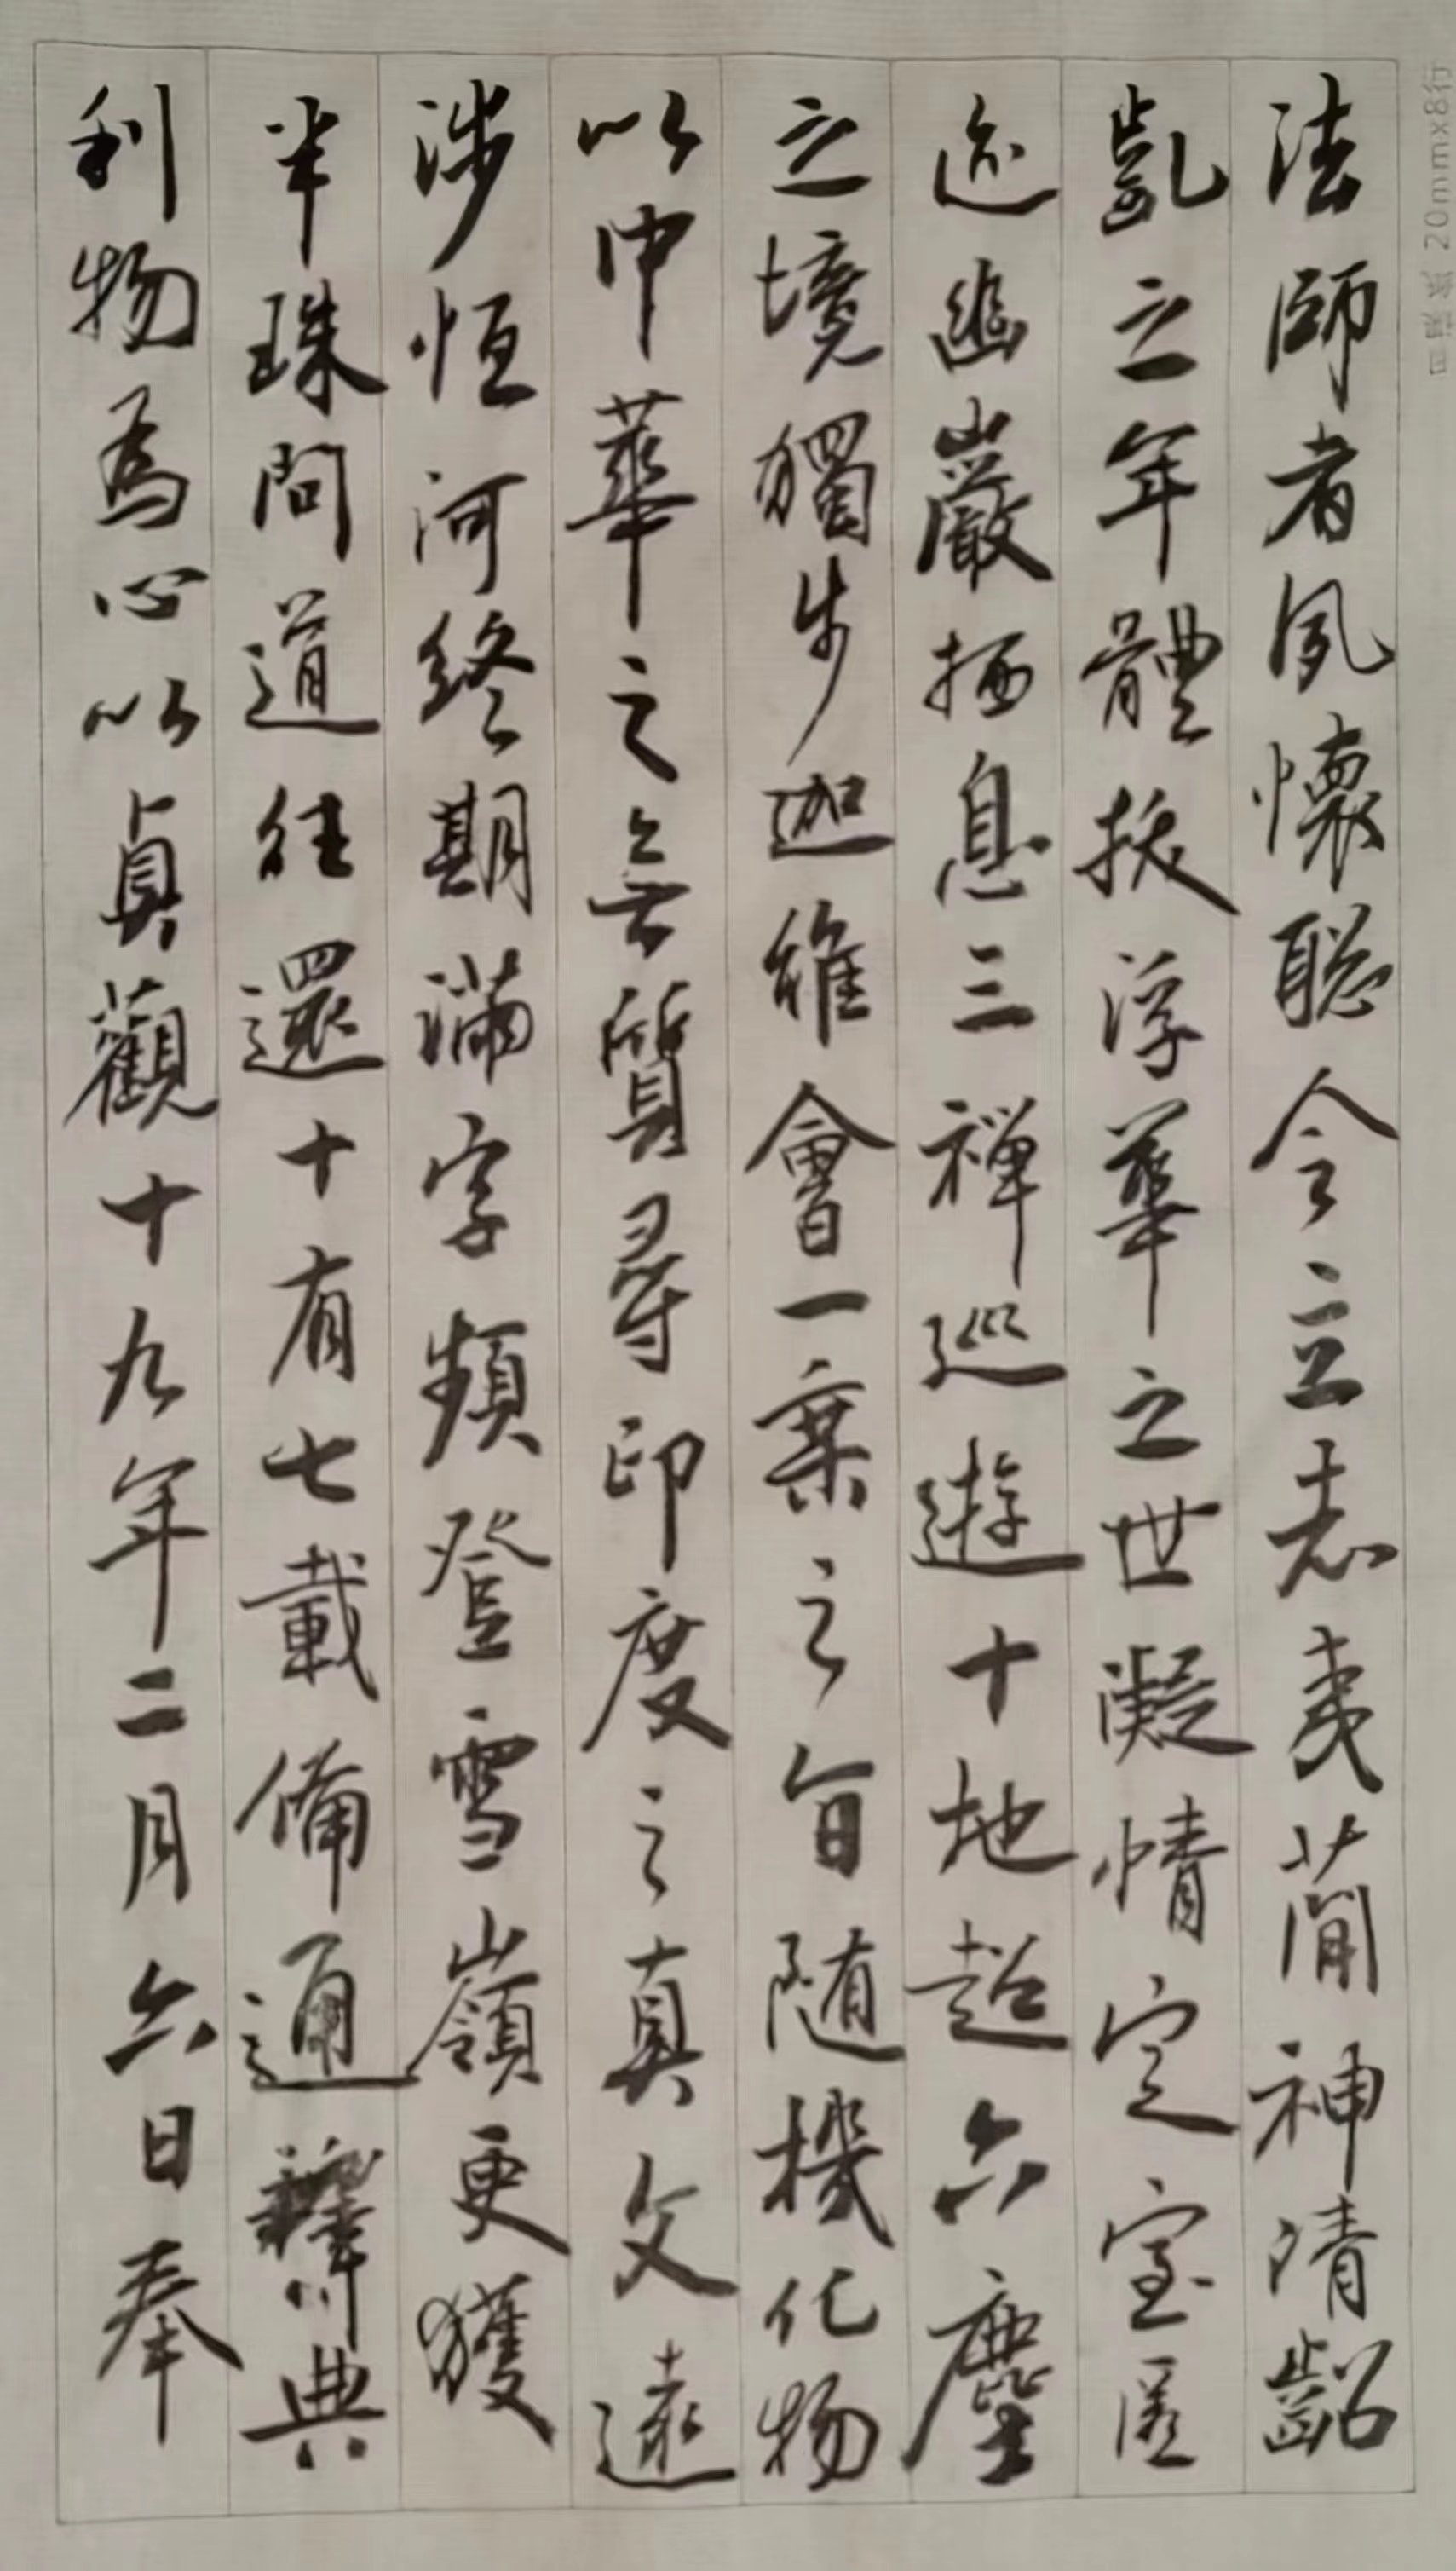 法師者夙懷聡令立志夷蕳神清齠
齔之年體抜浮華之世凝情定室匿
迹幽巖栖息三禅巡遊十地超六塵
之境獨步迦維會一乘之旨随機化物
以中華之無質尋印度之真文遠
涉恒河終期滿字頻登雪嶺更獲
半珠問道往還十有七載備通釋典
利物為心以貞觀十九年二月六日奉
20mmx8行